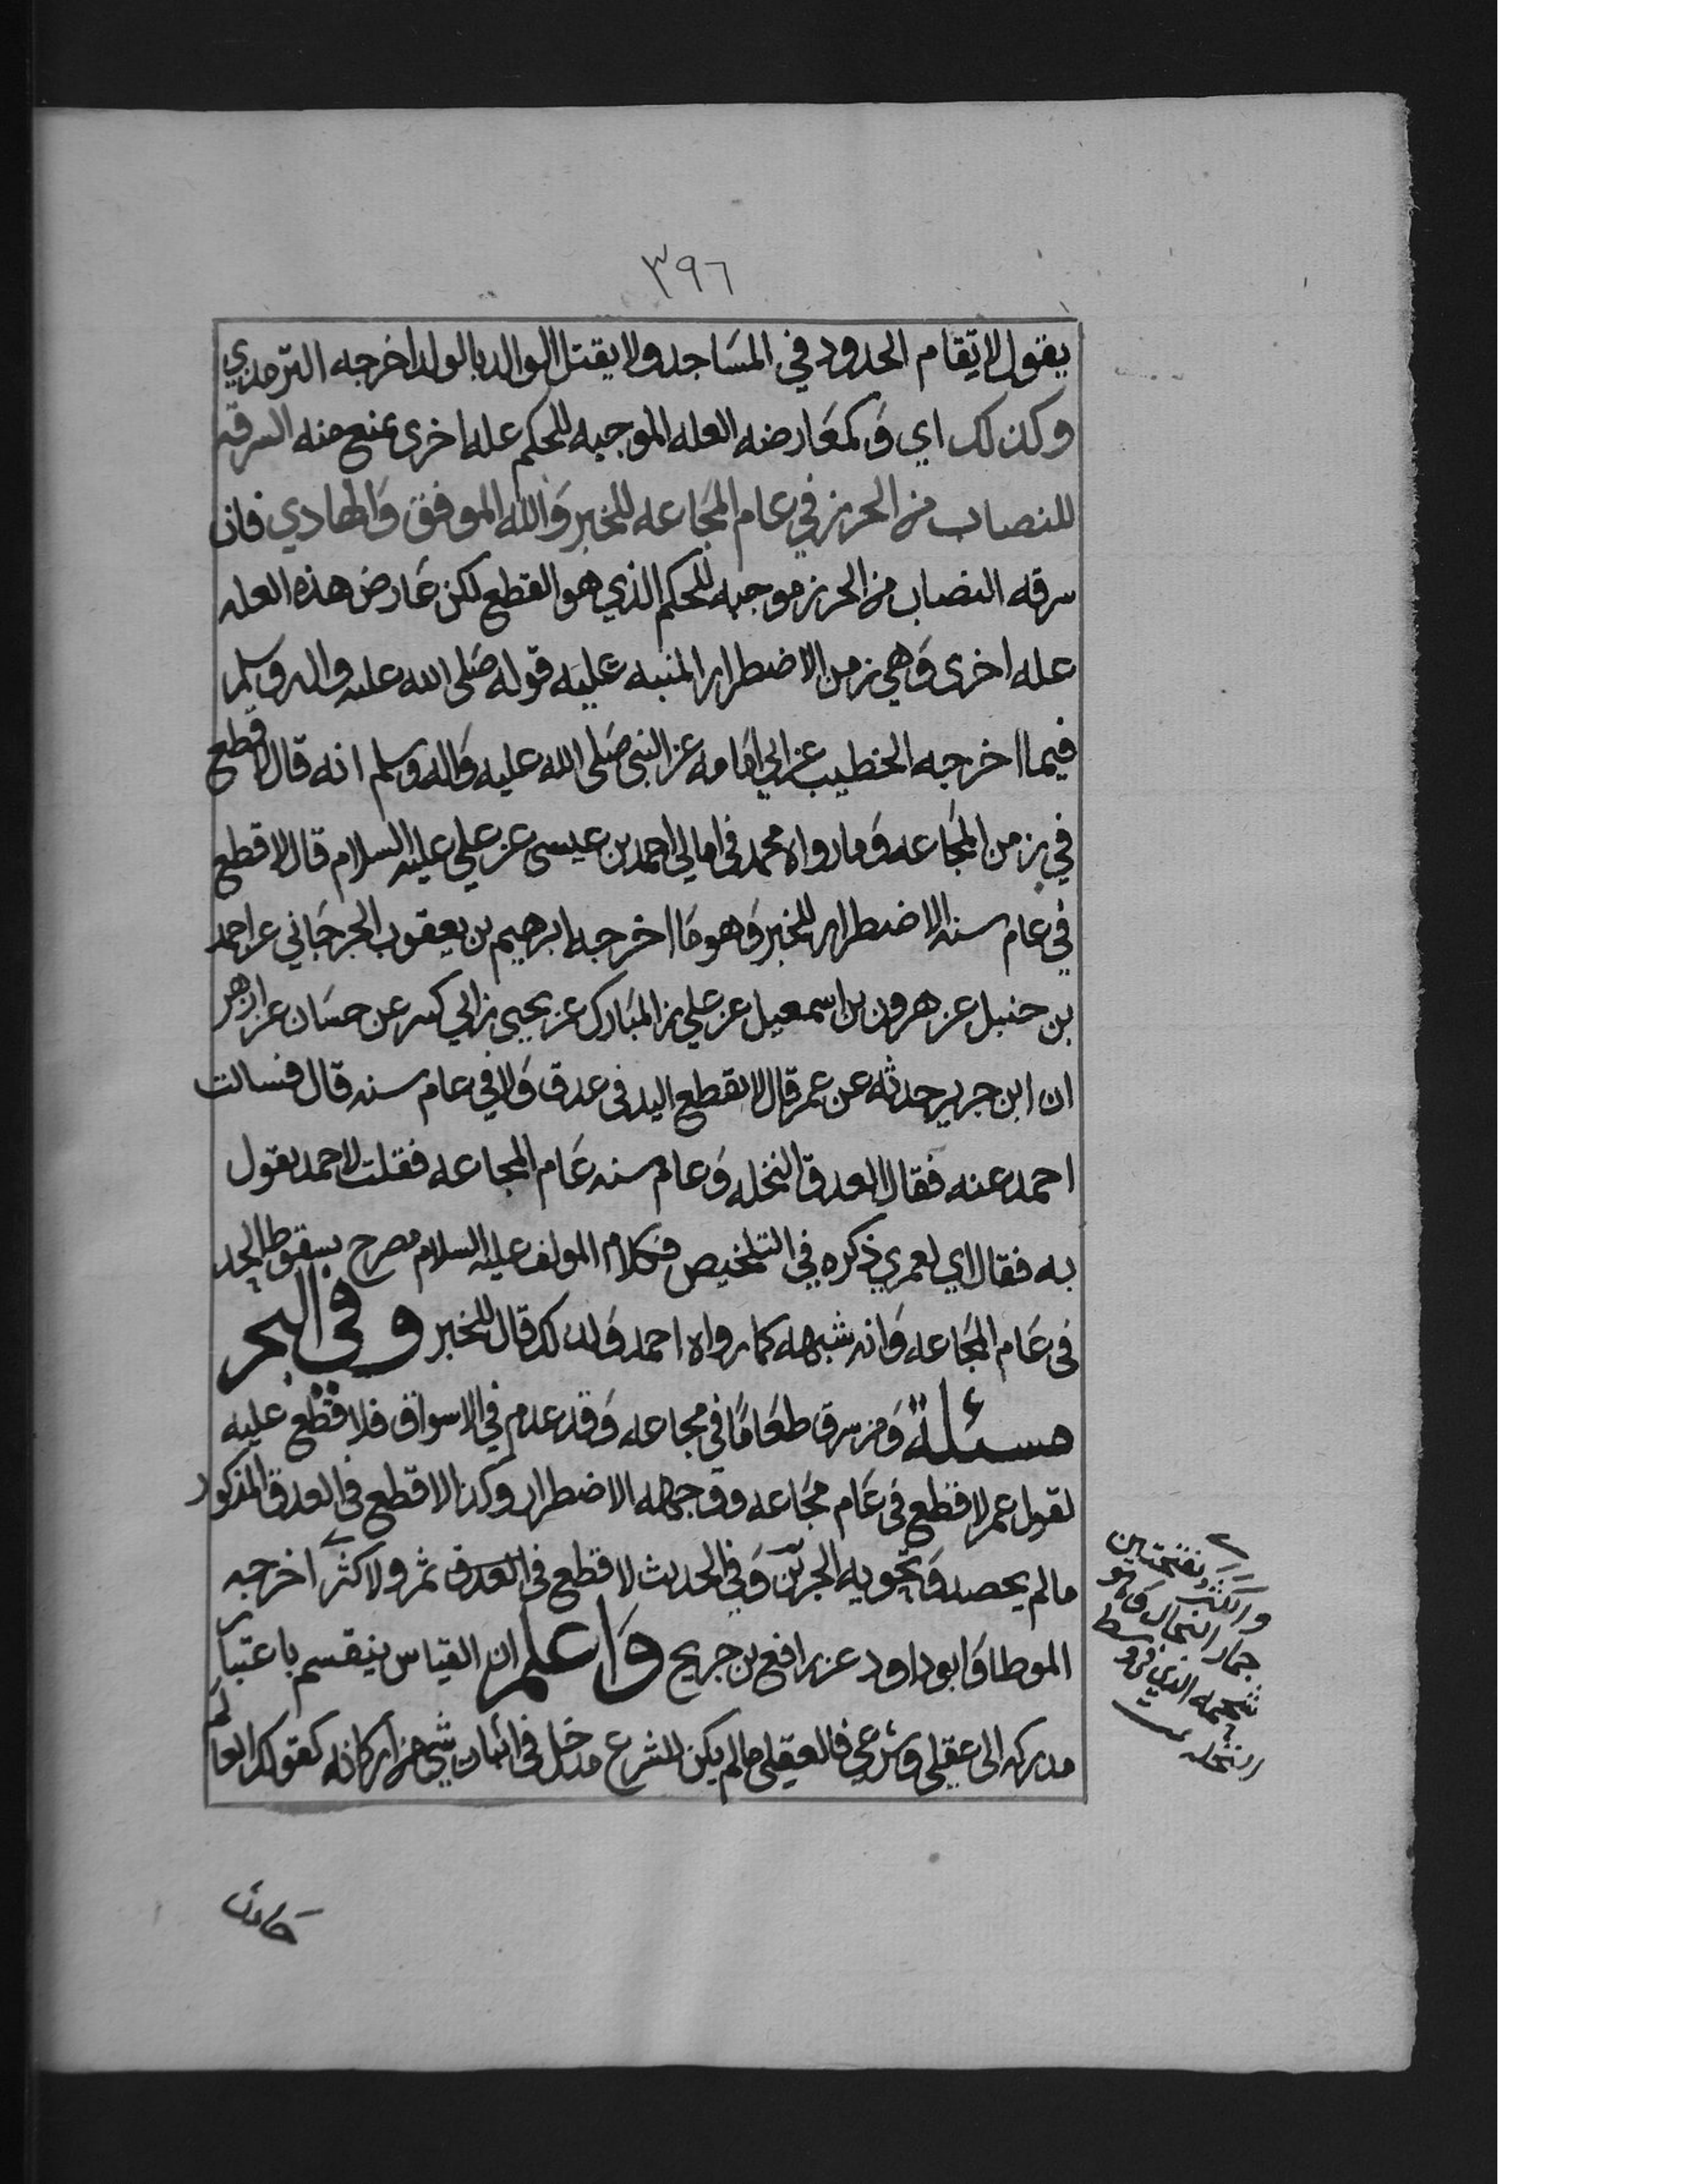 ٣٩٦
يقول لا تقام الحدود في المساجد ولا يقتل الوالد بالولد اخرجه الترمدي
وكذلك اي وكمعارضه العله الموجبه للحكم عله اخرى تمنع منه السرقه
للنصاب من الحرز في عام المجاعه للخبر والله الموفق والهادي فان
سرقه النصاب من الحرز موجبه للحكم الذي هو القطع لكن عارض هذه العله
عله اخرى وهي زمن الاضطرار المنبه عليه قوله صلى الله عليه واله وسلم
فيما اخرجه الخطيب عن ابي امامه عن النبي صلى الله عليه واله وسلم انه قال لا قطع
في زمن المجاعه وما رواه محمد في امالي احمد بن عيسى عن علي عليه السلام قال لا قطع
في عام سنه الاضطرار للخبر وهو ما اخرجه ابرهيم بن يعقوب الجرجاني عن احمد
بن حنبل عن هرون بن اسمعيل عن علي بن المبارك عن يحيى بن ابي كسر عن حسان عن ازهر
ان ابن جرير حدثه عن عمر قال لا تقطع اليد في عدق ولا في عام سنه قال فسالت
احمد عنه فقال العدق النخله وعام سنه عام المجاعه فقلت لاحمد تقول
به فقال اي لعمري ذكره في التلخيص فكلام المولف عليه السلام مصرح بسقوط الحد
في عام المجاعه وانه شبهه كما رواه احمد ولدلك قال للخبر وفي البحر
مسئلة ومن سرق طعاما في مجاعه وقد عدم في الاسواق فلا قطع عليه
لقول عمر لا قطع في عام مجاعه ووجهه الاضطرار وكذا لا قطع في العدق المذكور
ما لم يحصد وتحويه الجرين وفي الحديث لا قطع في العدق ثمر ولا كثر اخرجه
الموطا وابو داود عن رافع بن جريج واعلم ان القياس ينقسم باعتبار
مدركه الى عقلي وشرعي فالعقلي ما لم يكن للشرع مدخل في اثبات شي من اركانه كقولك العالم
والكثر بفتحتين
جمار النخل وهو
شحمه الذي في وسط
النخله
حادث